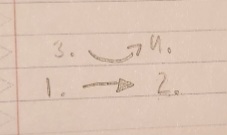 3. 4.
1. → 2.